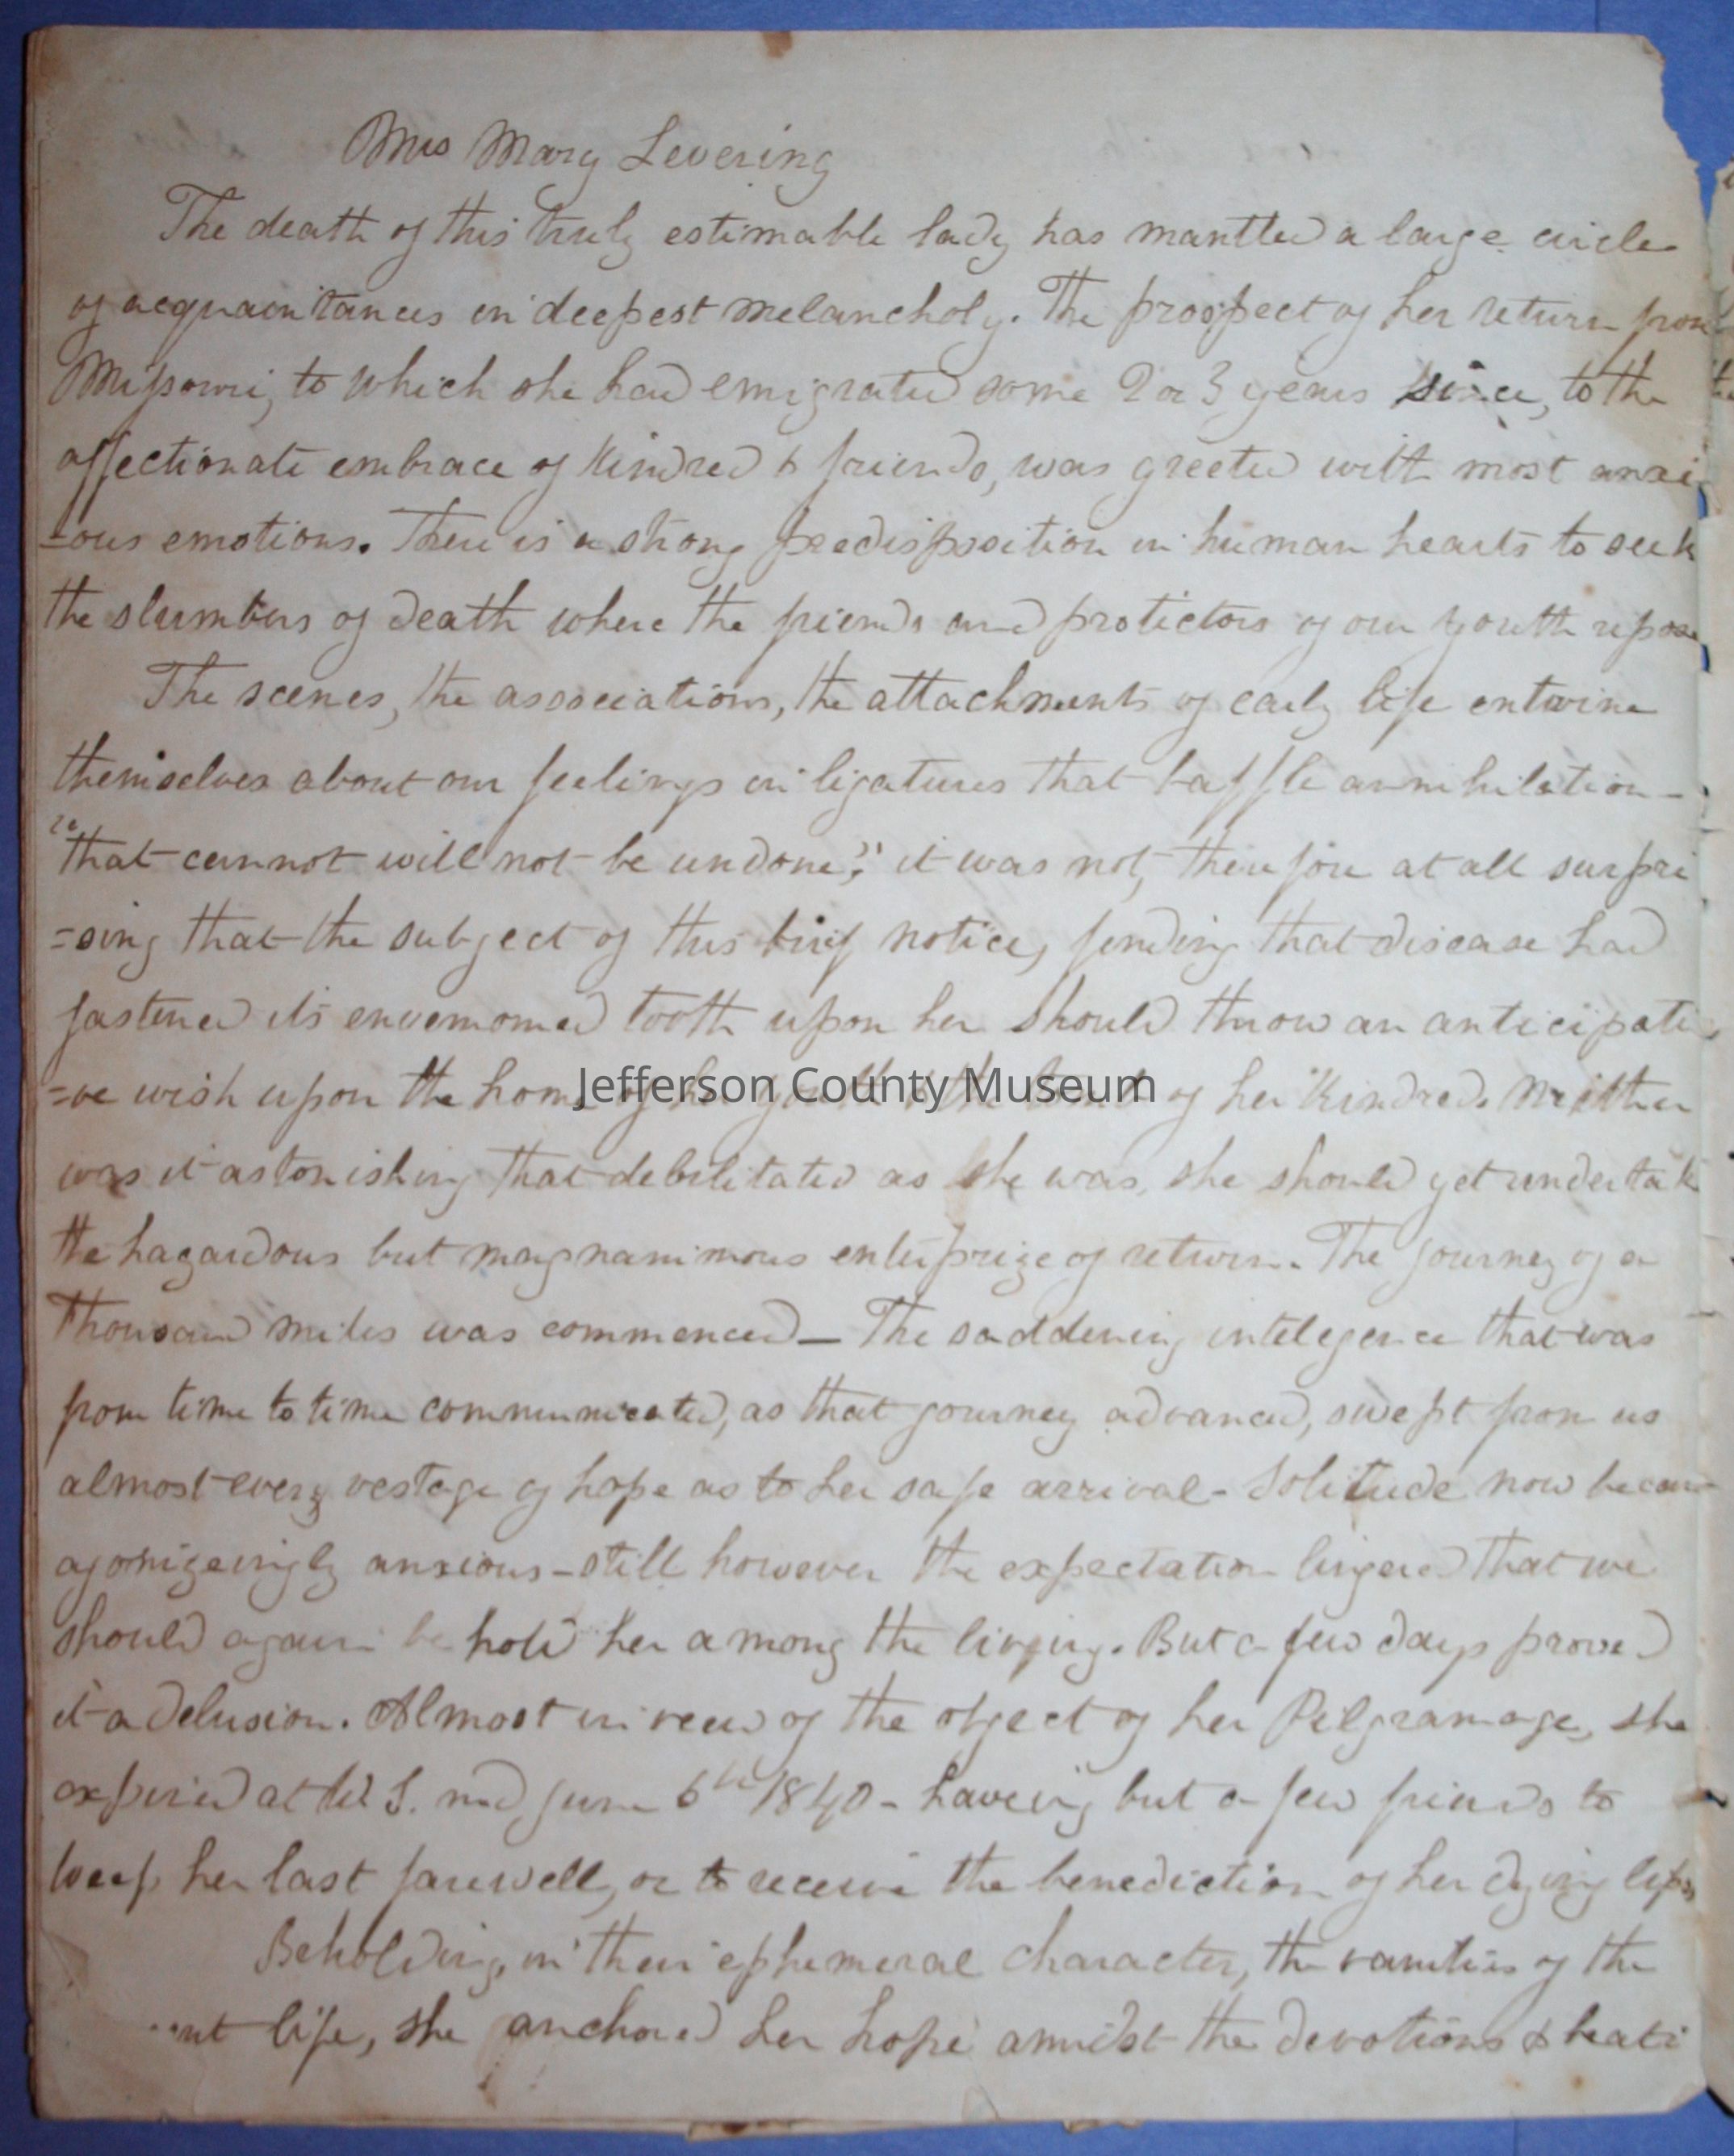 Mrs Mary Levering
The death of this truly estimable lady has mantled a large circle
of acquaintances in deepest melancholy. The prospect of her return from
Missouri, to which she had emigrated some 2 or 3 years since, to the
affectionate embrace of Kindred & friends, was greeted with most anxi
=ous emotions. There is a strong predisposition in human hearts to seek
the slumbers of death where the friends and protectors of our youth repose
The scenes, the associations, the attachments of early life entwine
themselves about our feelings in ligatures that baffle annihilation -
"that cannot will not be undone;" it was not, therefore at all surpri
=sing that the subject of this brief notice, finding that disease had
fastened its envenomed tooth upon her should throw an anticipati
=ve wish upon the home of her youth & the tomb of her Kindred. Neither
Jefferson County Museum
was it astonishing that debilitated as she was, she should yet undertak
the hazardous but magnanimous enterprize of return. The journey of a
Thousand miles was commenced — The saddening intelegence that was
from time to time communicated, as that journey advanced, swept from us
almost every vestage of hope as to her safe arrival - Solitude now became
agonizeingly anxious - still however the expectation lingered that we
should again behold her among the living. But a few days proved
it a delusion. Almost in view of the object of her Pilgramage, she
expired at W S. md June 6th 1840 - haveing but a few friends to
weep her last farewell, or to receive the benediction of her dying lips
Beholding, in their ephemeral character, the vanities of the
life, she anchored her hope amidst the devotions & beati